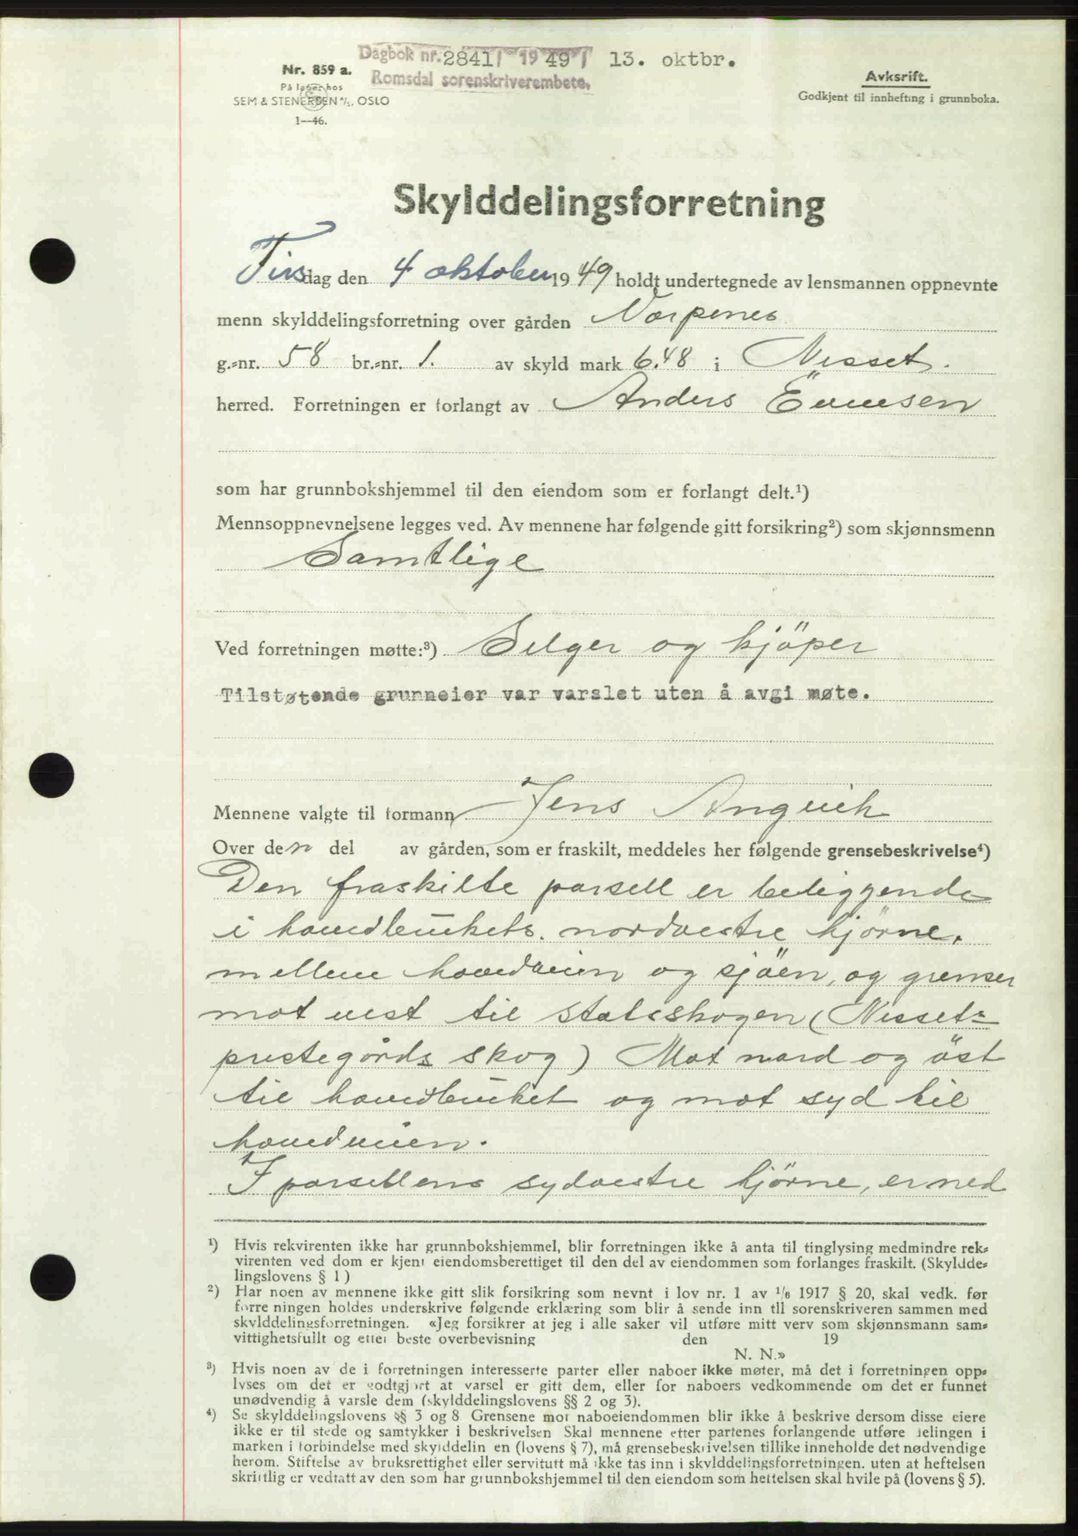 Dagbok nr. 2841/1949/ 13. oktbr.
Romsdal sorenskriverembete.
Nr. 859 a.
På lager hos
SEM & STENERSEN A/S, OSLO
1—46.
Avksrift.
Godkjent til innhefting i grunnboka.
Skylddelingsforretning
Tirsdag den 4 oktober 1949 holdt undertegnede av lensmannen oppnevnte
menn skylddelingsforretning over gården Norpenes
g.-nr. 58 br.-nr. 1. av skyld mark 6.48 i Nesset.
herred. Forretningen er forlangt av Anders Evensen
som har grunnbokshjemmel til den eiendom som er forlangt delt.¹)
Mennsoppnevnelsene legges ved. Av mennene har følgende gitt forsikring²) som skjønnsmenn
Samtlige
Ved forretningen møtte:³) Selger og kjöper
Tilstøtende grunneier var varslet uten å avgi møte.
Mennene valgte til formann Jens Angvik
Over den del av gården, som er fraskilt, meddeles her følgende grensebeskrivelse⁴)
Den fraskilte parsell er beliggende
i hovedbrukets. nordvestre hjörne.
mellem hovedveien og sjöen, og grenser
mot vest til statsskogen (Nesset-
prestegårds skog) Mot nord og öst
til hovedbruket og mot syd til
hovedveien.
I parsellens sydvestre hjörne, er ned
¹) Hvis rekvirenten ikke har grunnbokshjemmel, blir forretningen ikke å anta til tinglysing medmindre rek-
virenten ved dom er kjent eiendomsberettiget til den del av eiendommen som forlanges fraskilt. (Skyldde-
lingslovens § 1)
²) Har noen av mennene ikke gitt slik forsikring som nevnt i lov nr. 1 av 1/6 1917 § 20, skal vedk. før
forretningen holdes underskrive følgende erklæring som blir å sende inn til sorenskriveren sammen med
skylddelingsforretningen. «Jeg forsikrer at jeg i alle saker vil utføre mitt verv som skjønnsmann sam-
vittighetsfullt og etter beste overbevisning den 19
N. N.»
³) Hvis noen av de i forretningen interesserte parter eller naboer ikke møter, må det i forretningen opp-
lyses om det er godtgjort at varsel er gitt dem, eller for naboers vedkommende om det er funnet
unødvendig å varsle dem (skylddelingslovens §§ 2 og 3).
⁴) Se skylddelingslovens §§ 3 og 8. Grensene mot naboeiendommen blir ikke å beskrive dersom disse eiere
ikke er til stede og samtykker i beskrivelsen Skal mennene etter partenes forlangende utføre delingen i
marken i forbindelse med skylddelingen (lovens § 7), må grensebeskrivelsen tillike inneholde det nødvendige
herom. Stiftelse av bruksrettighet eller servitutt må ikke tas inn i skylddelingsforretningen. uten at heftelsen
skriftlig er vedtatt av den som har grunnbokshjemmel til den eiendom som heftelsen skal hvile på (lovens § 5).